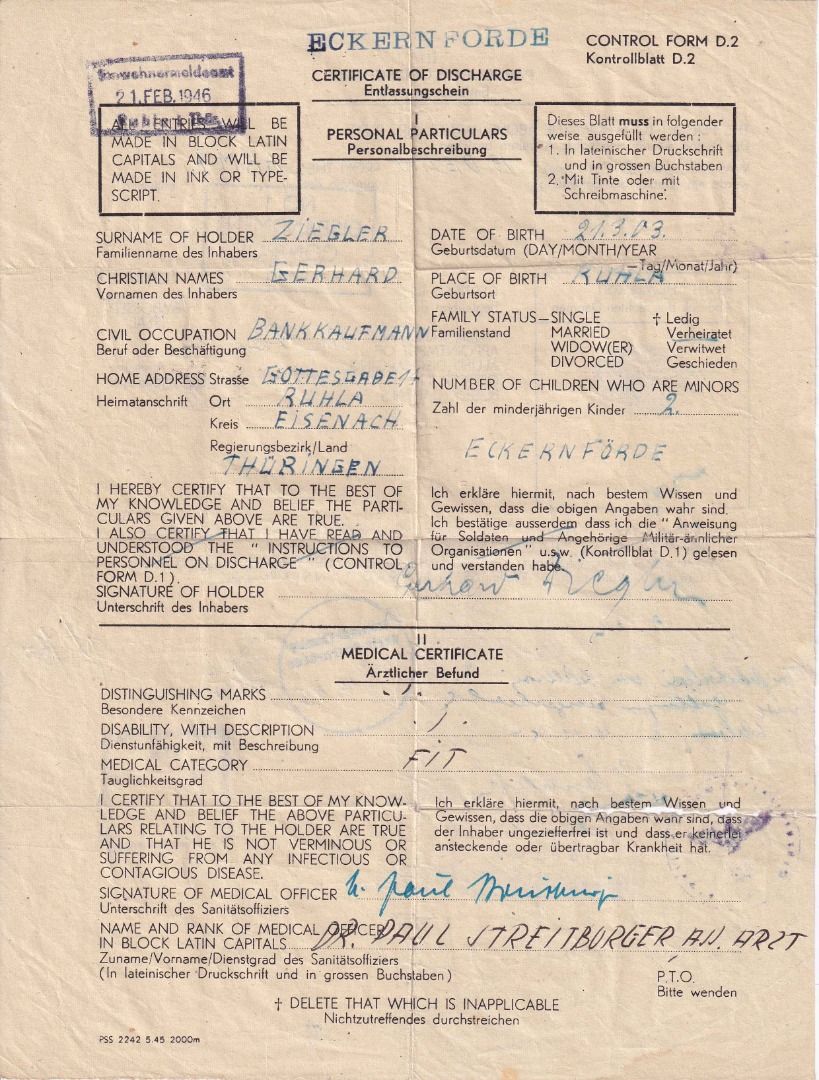 ECKERNFORDE
CONTROL FORM D.2
Kontrollblatt D.2
Einwohnermeldeamt
21. FEB. 1946
CERTIFICATE OF DISCHARGE
Entlassungschein
I
PERSONAL PARTICULARS
Personalbeschreibung
ALL ENTRIES WILL BE
MADE IN BLOCK LATIN
CAPITALS AND WILL BE
MADE IN INK OR TYPE-
SCRIPT.
Dieses Blatt muss in folgender
weise ausgefüllt werden :
1. In lateinischer Druckschrift
und in grossen Buchstaben
2. Mit Tinte oder mit
Schreibmaschine.
SURNAME OF HOLDER ZIEGLER
Familienname des Inhabers
DATE OF BIRTH 21.3.03.
Geburtsdatum (DAY/MONTH/YEAR
—Tag/Monat/Jahr)
CHRISTIAN NAMES GERHARD
Vornamen des Inhabers
PLACE OF BIRTH RUHLA
Geburtsort
CIVIL OCCUPATION BANKKAUFMANN
Beruf oder Beschäftigung
FAMILY STATUS—SINGLE † Ledig
Familienstand MARRIED Verheiratet
WIDOW(ER) Verwitwet
DIVORCED Geschieden
HOME ADDRESS Strasse GOTTESGABE
Heimatanschrift Ort RUHLA
Kreis EISENACH
Regierungsbezirk/Land
THÜRINGEN
NUMBER OF CHILDREN WHO ARE MINORS
Zahl der minderjährigen Kinder 2.
ECKERNFÖRDE
I HEREBY CERTIFY THAT TO THE BEST OF
MY KNOWLEDGE AND BELIEF THE PARTI-
CULARS GIVEN ABOVE ARE TRUE.
I ALSO CERTIFY THAT I HAVE READ AND
UNDERSTOOD THE " INSTRUCTIONS TO
PERSONNEL ON DISCHARGE " (CONTROL
FORM D.1).
SIGNATURE OF HOLDER Gerhard Ziegler
Unterschrift des Inhabers
Ich erkläre hiermit, nach bestem Wissen und
Gewissen, dass die obigen Angaben wahr sind.
Ich bestätige ausserdem dass ich die " Anweisung
für Soldaten und Angehörige Militär-ännlicher
Organisationen" u.s.w. (Kontrollblat D.1) gelesen
und verstanden habe.
II
MEDICAL CERTIFICATE
Ärztlicher Befund
DISTINGUISHING MARKS ./.
Besondere Kennzeichen
DISABILITY, WITH DESCRIPTION ./.
Dienstunfähigkeit, mit Beschreibung
MEDICAL CATEGORY FIT
Tauglichkeitsgrad
I CERTIFY THAT TO THE BEST OF MY KNOW-
LEDGE AND BELIEF THE ABOVE PARTICU-
LARS RELATING TO THE HOLDER ARE TRUE
AND THAT HE IS NOT VERMINOUS OR
SUFFERING FROM ANY INFECTIOUS OR
CONTAGIOUS DISEASE.
Ich erkläre hiermit, nach bestem Wissen und
Gewissen, dass die obigen Angaben wahr sind, dass
der Inhaber ungezieferfrei ist und dass er keinerlei
ansteckende oder übertragbar Krankheit hat.
SIGNATURE OF MEDICAL OFFICER
Unterschrift des Sanitätsoffiziers
NAME AND RANK OF MEDICAL OFFICER
IN BLOCK LATIN CAPITALS DR. PAUL STREITBURGER ASS. ARZT
Zuname/Vorname/Dienstgrad des Sanitätsoffiziers
(In lateinischer Druckschrift und in grossen Buchstaben)
P.T.O.
Bitte wenden
† DELETE THAT WHICH IS INAPPLICABLE
Nichtzutreffendes durchstreichen
PSS 2242 5.45 2000m